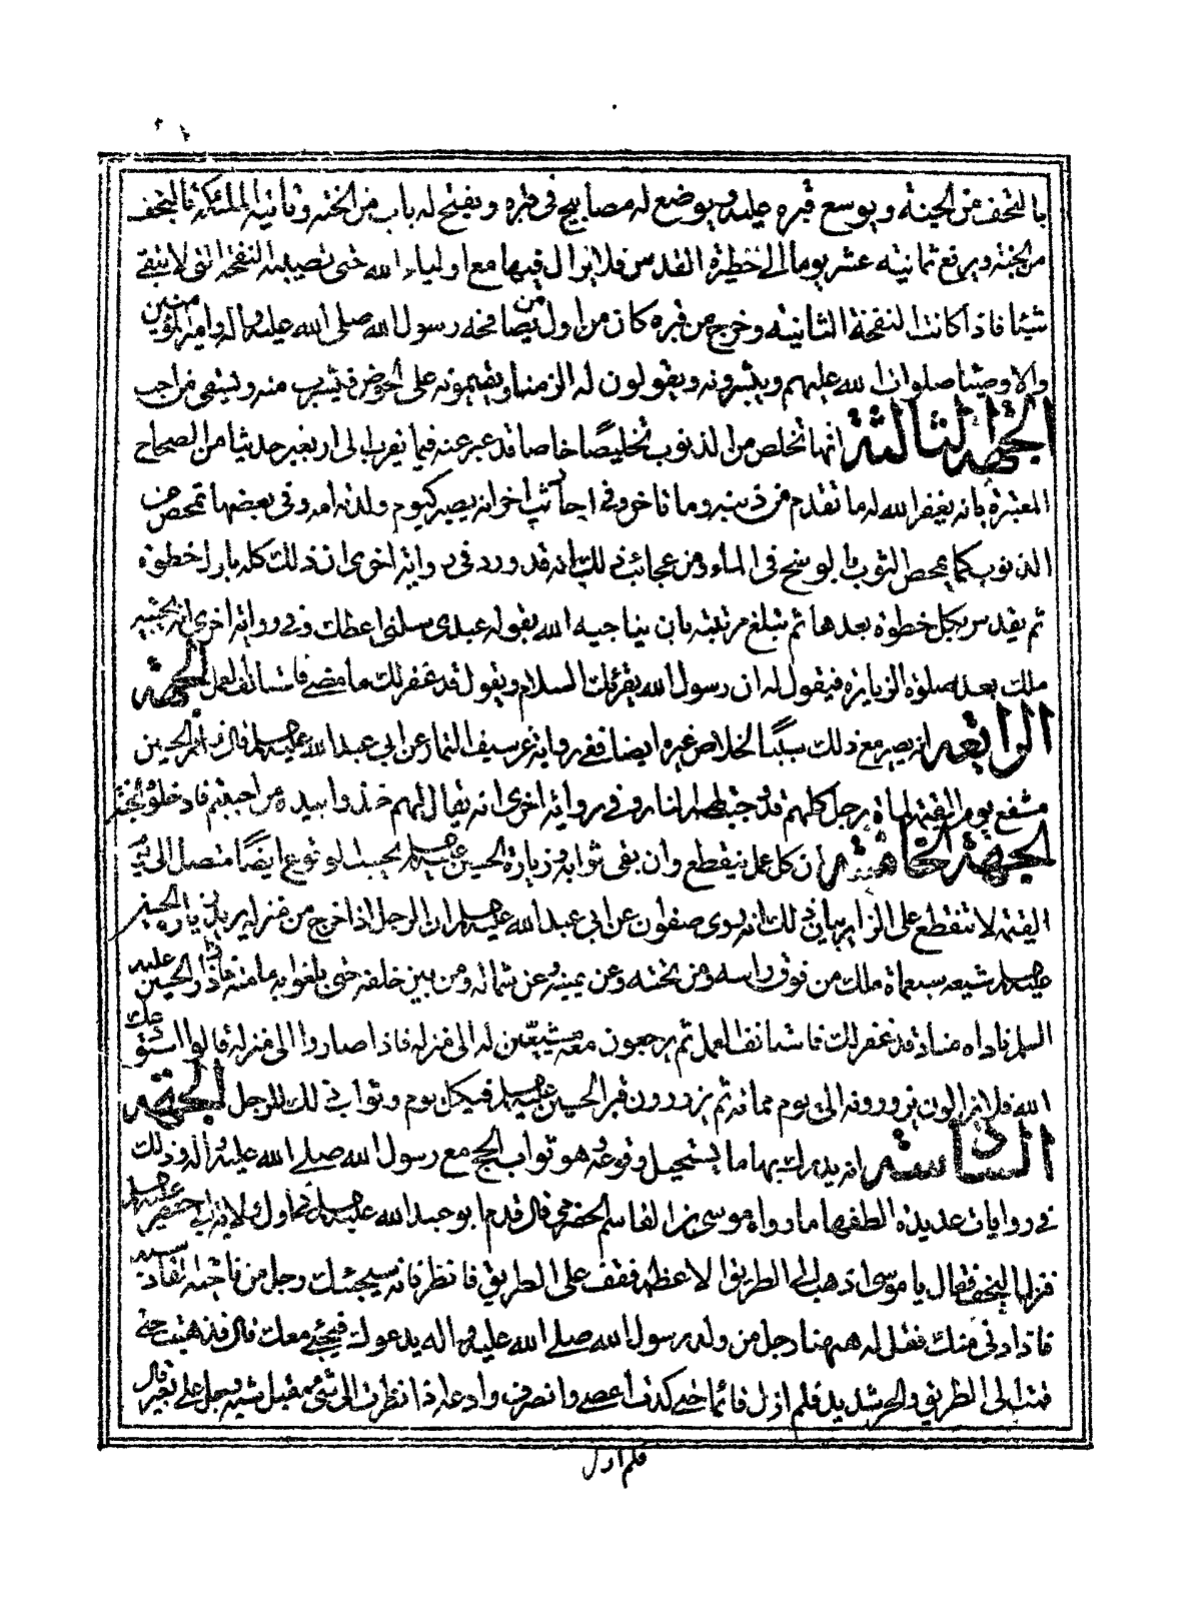 بالتحف من الجنة ويوسع قبره عليه ويوضع له مصابيح في قبره ويفتح له باب من الجنة وتأتيه الملئكة بالتحف
من الجنة ويرفع ثمانية عشر يوما الى حظيرة القدس فلا يزال فيها مع اولياء الله حتى تصيبه النفخة التي لا تبقي
شيئا فاذا كانت النفخة الثانية وخرج من قبره كان من اول من يصافحه رسول الله صلى الله عليه واله وامير المؤمنين
والاوصياء صلوات الله عليهم ويبشرونه ويقولون له الزمنا ويقيمونه على الحوض فيشرب منه ويسقى من احب
الجهة الثالثة انها تخلص من الذنوب تخليصًا خاصا قد عبر عنه فيما يقرب الى اربعين حديثا من الصحاح
المعتبرة بانه يغفر الله له ما تقدم من ذنبه وما تاخر وفي احاديث اخر انه يصير كيوم ولدته امه وفي بعضها تمحص من
الذنوب كما يمحص الثوب بالوسخ في الماء ومن عجائب ذلك انه قد ورد في رواية اخرى ان ذلك كله باول خطوة
ثم يقدس بكل خطوة بعدها ثم تبلغ مرتبته بان يناجيه الله بقوله عبدي سلني اعطك وفي رواية اخرى انه يجيئه
ملك بعد صلوة الزيارة فيقول له ان رسول الله يقرئك السلام ويقول قد غفر لك ما مضى فاستانف العمل الجهة
الرابعة انه يصير مع ذلك سببًا لخلاص غيره ايضا ففي رواية عن سيف التمار عن ابي عبد الله عليه السلم قال زائر الحسين
مشفع يوم القيمة لمأة رجل كلهم قد وجبت لهم النار وفي رواية اخرى انه يقال لهم خذوا بيد من احببتم فادخلوه الجنة
الجهة الخامسة ان كل عمل ينقطع وان بقى ثوابه وزيارة الحسين عليه السلم بحسب الوقوع ايضًا متصل الى يوم
القيمة لا تنقطع على الزاير بيان ذلك انه روى صفوان عن ابي عبد الله عليه السلم ان الرجل اذا خرج من منزله يريد زيارة الحسين
عليه السلم شيعه سبعمأة ملك من فوق راسه ومن تحته وعن يمينه وعن شماله ومن بين خلفه حتى يبلغوا به مامنه فاذا زار الحسين عليه
السلم ناداه مناد قد غفر لك فاستانف العمل ثم يرجعون معه مشيعين له الى منزله فاذا صاروا الى منزله قالوا نستودعك
الله فلا يزالون يزورونه الى يوم مماته ثم يزورون قبر الحسين عليه السلم في كل يوم وثواب ذلك للرجل الجهة
السادسة انه يدرك بها ما يستحيل وقوعه وهو ثواب الحج مع رسول الله صلى الله عليه واله وذلك
في روايات عديدة الطفها ما رواه موسى بن القاسم الحضرمي قال قدم ابو عبد الله عليه السلم في اول ولاية ابي جعفر
فنزل النجف فقال يا موسى اذهب الى الطريق الاعظم فقف على الطريق فانظر فانه سيجيئك رجل من ناحية القادسية
فاذا دنى منك فقل له ههنا رجل من ولد رسول الله صلى الله عليه واله يدعوك فيجئ معك قال فذهبت حتى
قمت الى الطريق والحر شديد فلم ازل قائما حتى كدت اعصي وانصرف وادعه اذ نظرت الى شئ مقبل شبه رجل على بعير قال
فلم ازل